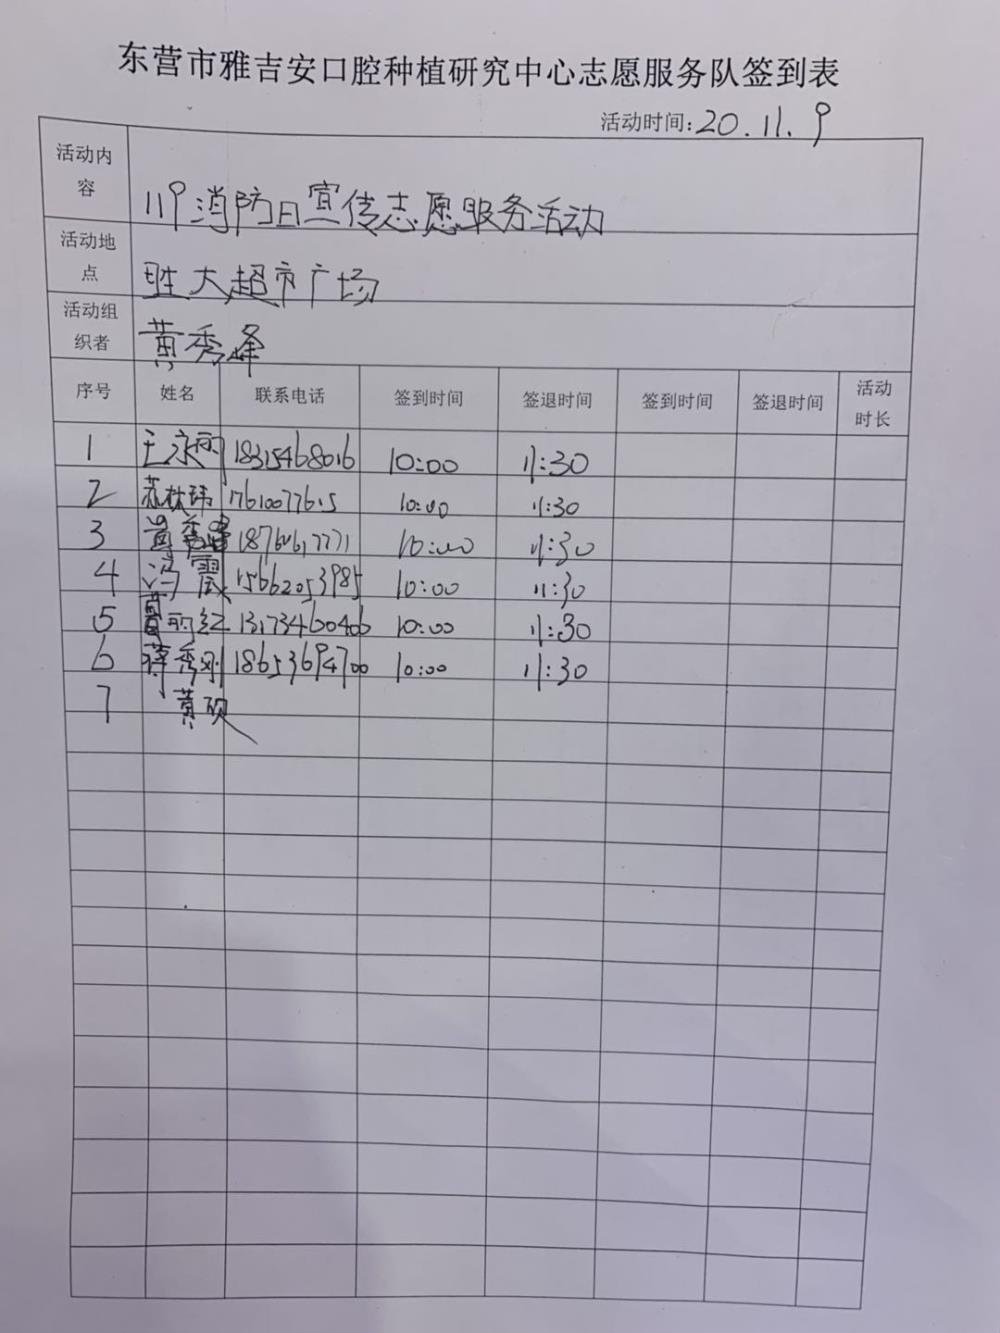 东营市雅吉安口腔种植研究中心志愿服务队签到表
活动时间:20.11.9
活动内容 119消防日宣传志愿服务活动
活动地点 胜大超市广场
活动组织者 黄秀峰
序号 姓名 联系电话 签到时间 签退时间 签到时间 签退时间 活动时长
1 王永丽 18315468016 10:00 11:30
2 苏林玮 17610077615 10:00 11:30
3 黄秀峰 18760617771 10:00 11:30
4 冯霞 15662053985 10:00 11:30
5 丽红 13173460406 10:00 11:30
6 蒋秀刚 18653694700 10:00 11:30
7 黄砚